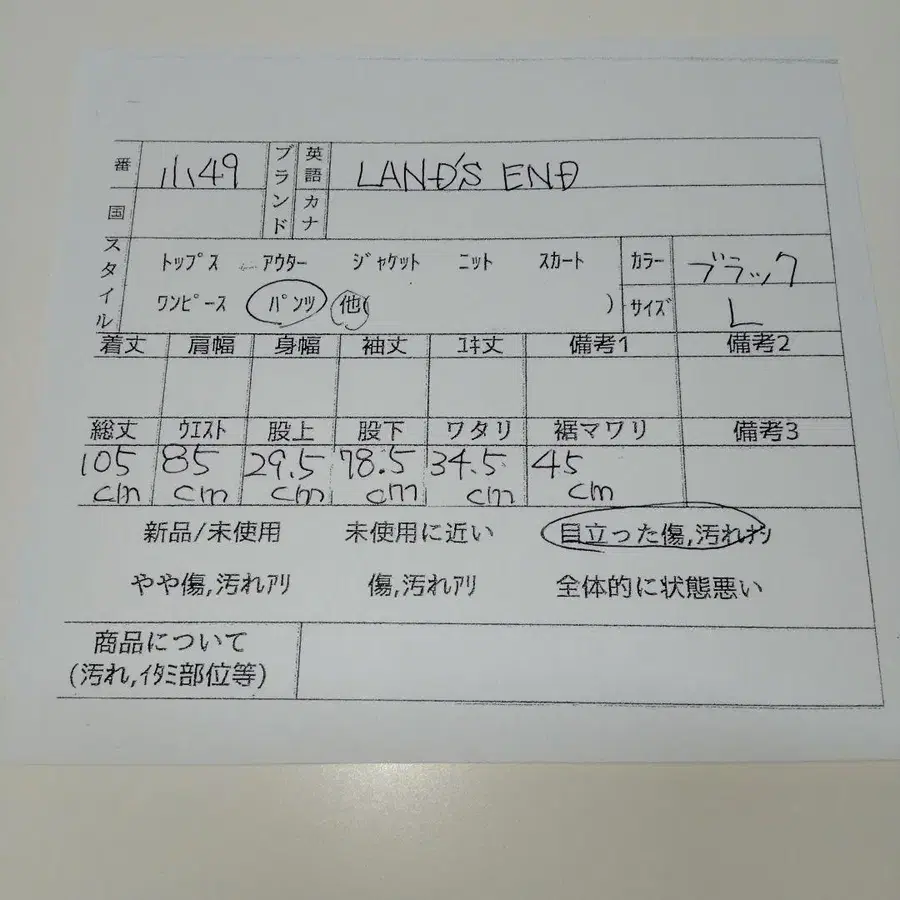 番 49 ブランド 英語 LAND'S END
国 カナ
スタイル ﾄｯﾌﾟｽ ｱｳﾀｰ ｼﾞｬｹｯﾄ ﾆｯﾄ ｽｶｰﾄ ｶﾗｰ ブラック
ﾜﾝﾋﾟｰｽ ﾊﾟﾝﾂ 他( ) ｻｲｽﾞ L
着丈 肩幅 身幅 袖丈 ﾕｷ丈 備考1 備考2
総丈 ｳｴｽﾄ 股上 股下 ワタリ 裾マワリ 備考3
105 85 29.5 78.5 34.5 45
cm cm cm cm cm cm
新品/未使用 未使用に近い 目立った傷,汚れﾅｼ
やや傷,汚れｱﾘ 傷,汚れｱﾘ 全体的に状態悪い
商品について
(汚れ,ｲﾀﾐ部位等)